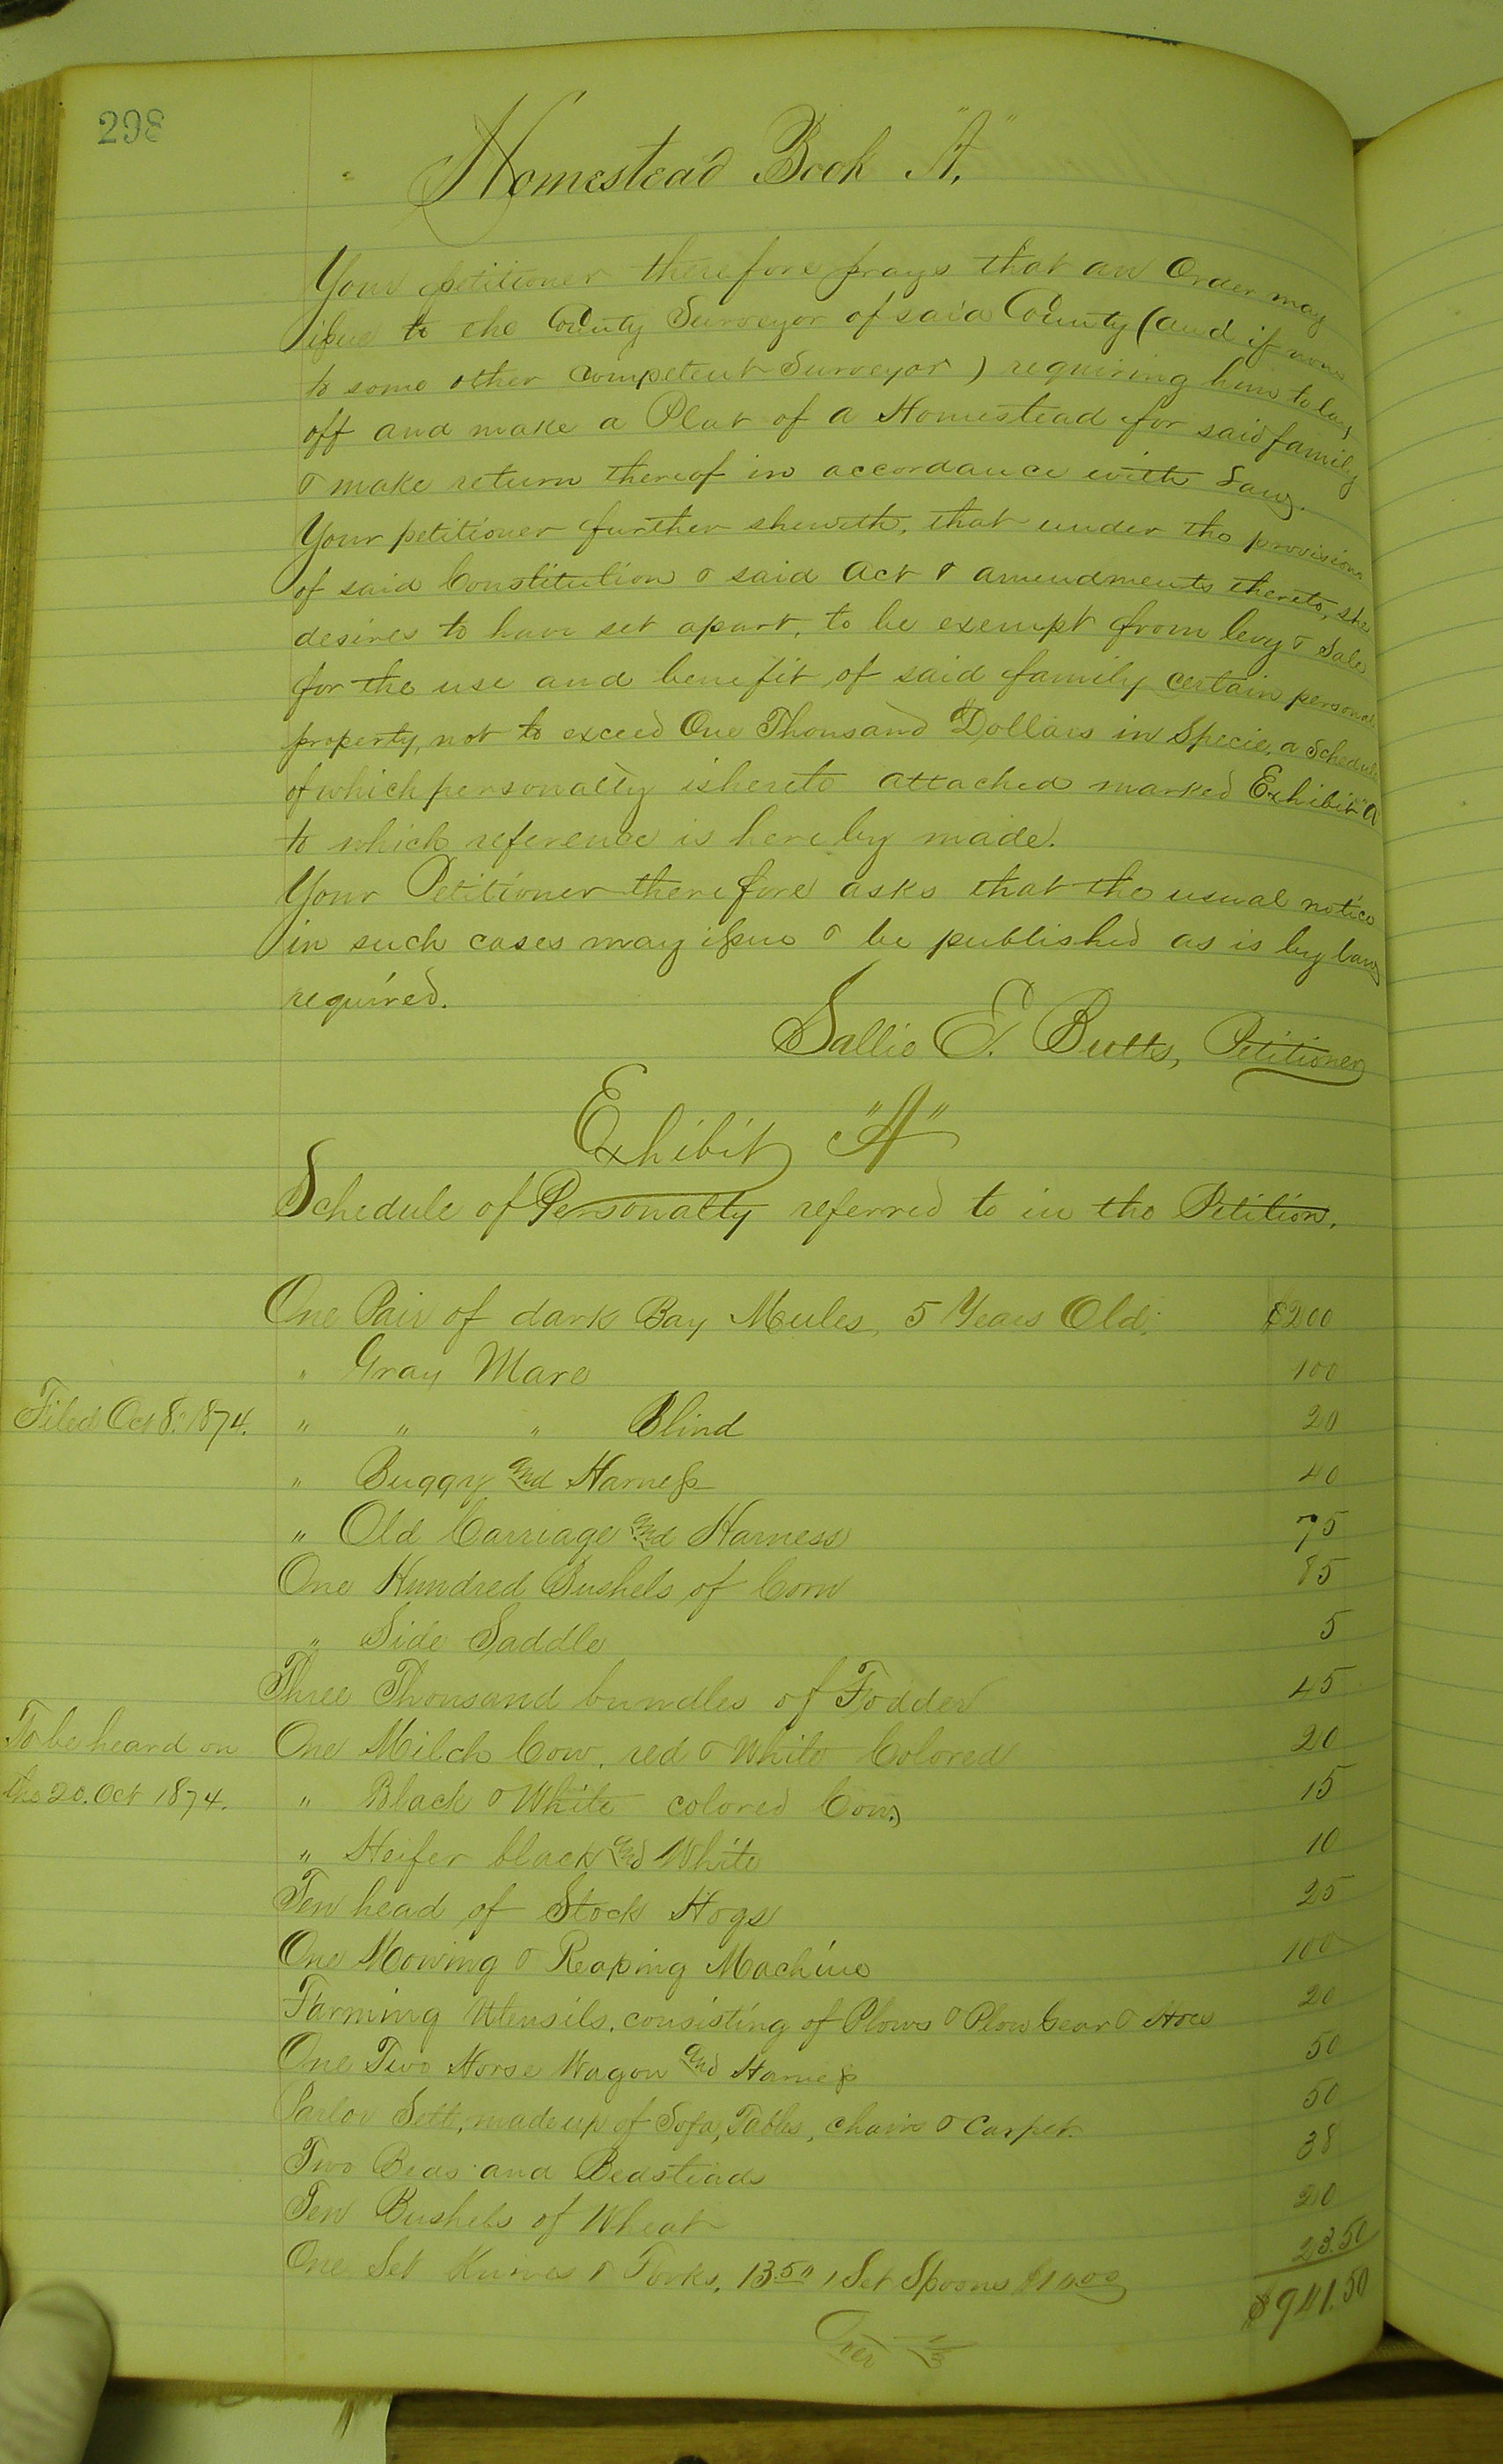 298
Homestead Book "A".
Your petitioner therefore prays that an Order may
issue to the County Surveyor of said County (and if none
to some other Competent Surveyor) requiring him to lay
off and make a Plat of a Homestead for said family
& make return thereof in accordance with Law.
Your petitioner further sheweth, that under the provisions
of said Constitution & said Act & amendments thereto, she
desires to have set apart, to be exempt from levy & Sale
for the use and benefit of said family certain personal
property, not to exceed One Thousand Dollars in Specie, a Schedule
of which personalty is hereto attached marked Exhibit "A"
to which reference is hereby made.
Your Petitioner therefore asks that the usual notice
in such cases may issue & be published as is by law
required.
Sallie E. Butts, Petitioner
Exhibit "A"
Schedule of Personalty referred to in the Petition.
One Pair of dark Bay Mules, 5 Years Old. $200
" Gray Mare 100
Filed Oct 8. 1874. " " " Blind 20
" Buggy and Harness 40
" Old Carriage and Harness 75
One Hundred Bushels of Corn 85
" Side Saddle 5
Three Thousand bundles of Fodder 45
To be heard on One Milch Cow, red & White Colored 20
the 20. Oct 1874. " Black & White colored Cow, 15
" Heifer black and White 10
Ten head of Stock Hogs 25
One Mowing & Reaping Machine 100
Farming Utensils, consisting of Plows & Plow Gear & Hoes 20
One Two Horse Wagon and Harness 50
Parlor Sett, made up of Sofa, Tables, chairs & Carpet. 50
Two Beds and Bedsteads 38
Ten Bushels of Wheat 20
One Set Knives & Forks, 13.50 1 Set Spoons $10.00 23.50
$941.50
Over